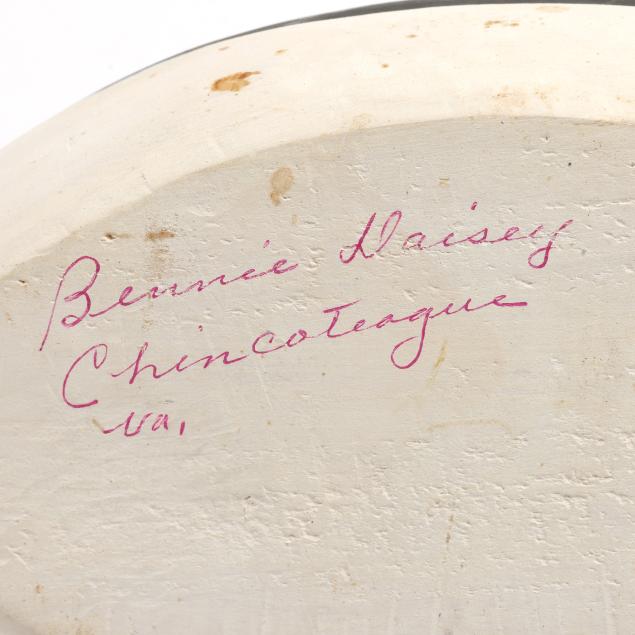 Bennie Daisey
Chincoteague
va.